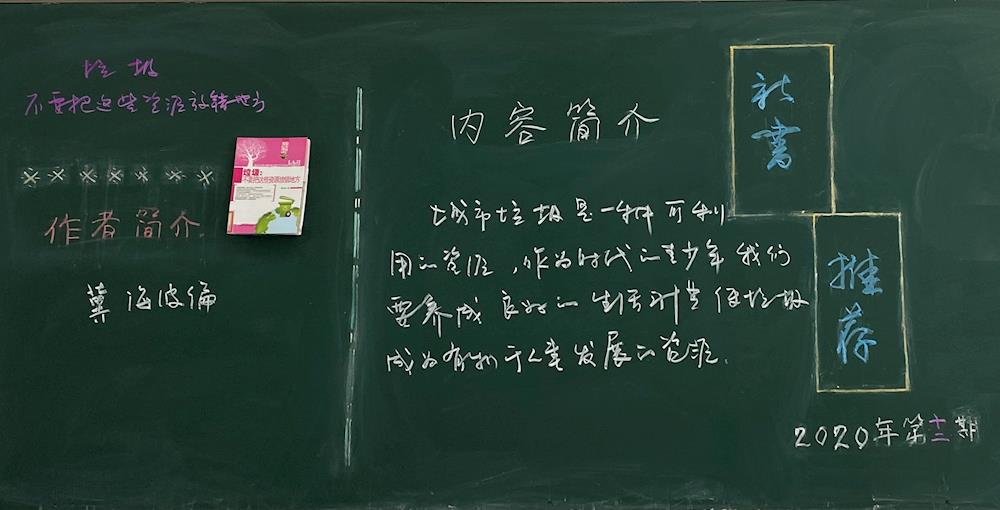 垃圾
不要把这些资源放错地方
作者简介
冀海波编
垃圾:
不要把这些资源放错地方
内容简介
城市垃圾是一种可利
用的资源,作为时代的青少年我们
要养成良好的生活习惯使垃圾
成为有利于人类发展的资源.
新书
推荐
2020年第十二期